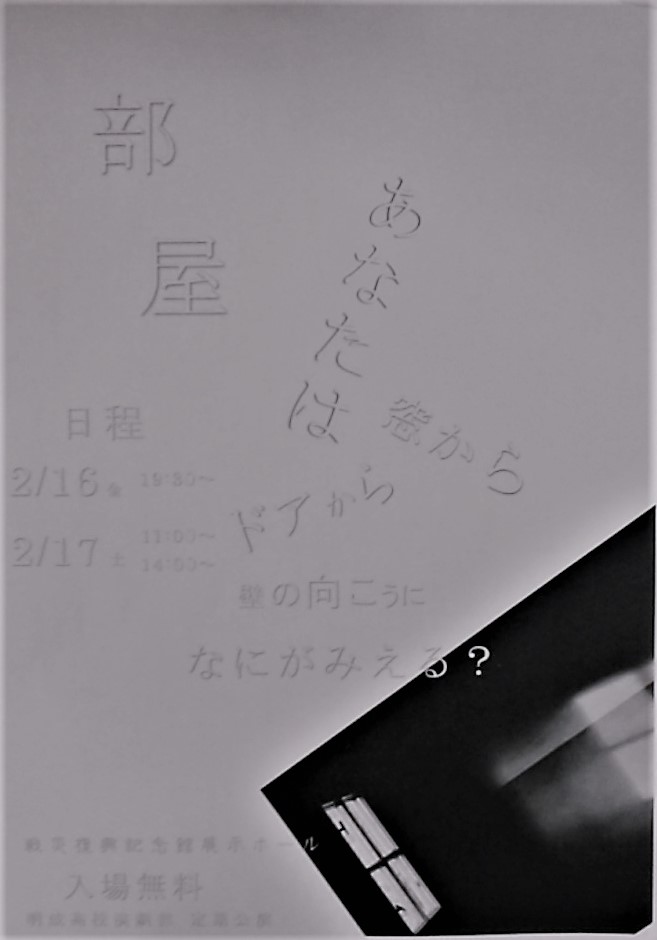 部屋
あなたは
窓から
ドアから
壁の向こうに
なにがみえる？
日程
2/16 金 19:30〜
2/17 土 11:00〜
14:00〜
戦災復興記念館展示ホール
入場無料